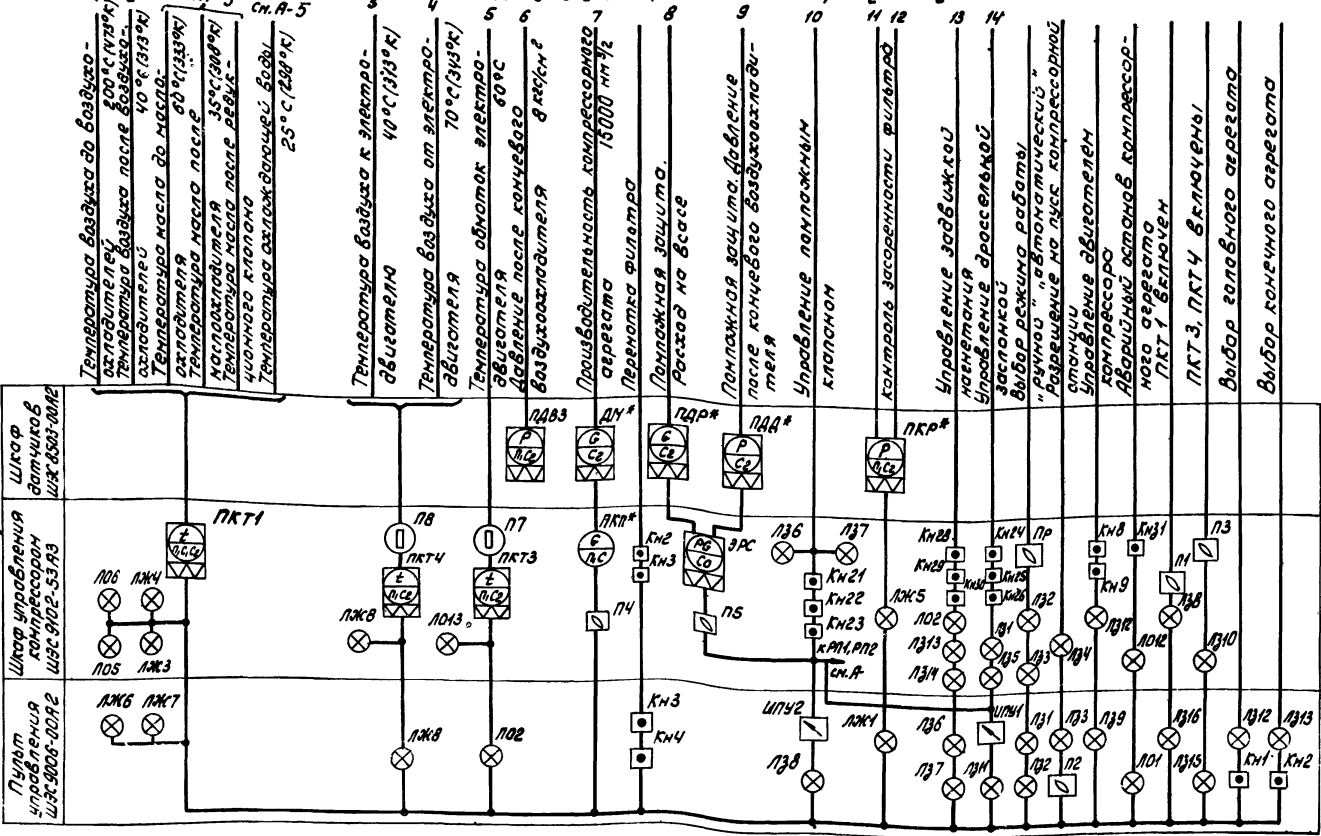 см. А-5
3 4 5 6 7 8 9 10 11 12 13 14
Температура воздуха до воздухо-
охладителей 200°С(473°К)
температура воздуха после воздухо-
охладителей 40°С(313°К)
Температура масла до масло-
охладителя 60°С(333°К)
температура масла после
маслоохладителя 35°С(308°К)
Температура масла после редук-
ционного клапана
Температура охлаждающей воды
25°С(298°К)
Температура воздуха к электро-
двигателю 40°С(313°К)
Температура воздуха от электро-
двигателя 70°С(343°К)
Температура обмоток электро-
двигателя 60°С
Давление после концевого
воздухоохладителя 8 кгс/см²
Производительность компрессорного
агрегата 15000 нм³/г
Перемотка фильтра
Помпажная защита.
Расход на всасе
Помпажная защита. Давление
после концевого воздухоохлади-
теля
Управление помпажным
клапаном
контроль засоренности фильтра
Управление задвижкой
нагнетания
Управление дроссельной
заслонкой
Выбор режима работы
"ручной" "автоматический"
Разрешение на пуск компрессорной
станции
Управление двигателем
компрессора
Аварийный останов компрессор-
ного агрегата
ПКТ 1 включен
ПКТ3, ПКТ4 включены
Выбор главного агрегата
Выбор конечного агрегата
Шкаф
датчиков
ШЭС 8503-00А2
ПДВ3
P
П,С2
ДМ*
G
С2
ПДР*
G
С2
ПДД*
P
С2
ПКР*
P
П,С2
Шкаф управления
компрессором
ШЭС 9102-53А3
ПКТ1
t
П,С,С2
ЛО6
ЛЖ4
ЛО5
ЛЖ3
П8
ПКТ4
t
П,С2
ЛЖ8
П7
ПКТ3
t
П,С2
ЛО13
ПКП*
G
П,С
П4
Кн2
Кн3
ЭРС
PG
Со
П5
ЛЗ6
ЛЗ7
Кн21
Кн22
Кн23
к РП1,РП2
см. А-
ЛЖ5
Кн28
Кн29
Кн30
ЛО2
ЛЗ13
ЛЗ14
Кн24
Кн25
Кн26
ЛЗ1
ЛЗ5
ПР
ЛЗ2
ЛЗ3
ЛЗ4
Кн8
Кн9
ЛЗ12
Кн31
ЛО12
П1
ЛЗ8
П3
ЛЗ10
Пульт
управления
ШЭС 9006-00А2
ЛЖ6
ЛЖ7
ЛЖ8
ЛО2
Кн3
Кн4
ИПУ2
ЛЗ8
ЛЖ1
ЛЗ6
ЛЗ7
ИПУ1
ЛЗ11
ЛЗ1
ЛЗ2
ЛЗ3
П2
ЛЗ9
ЛО1
ЛЗ16
ЛЗ15
ЛЗ12
Кн1
ЛЗ13
Кн2